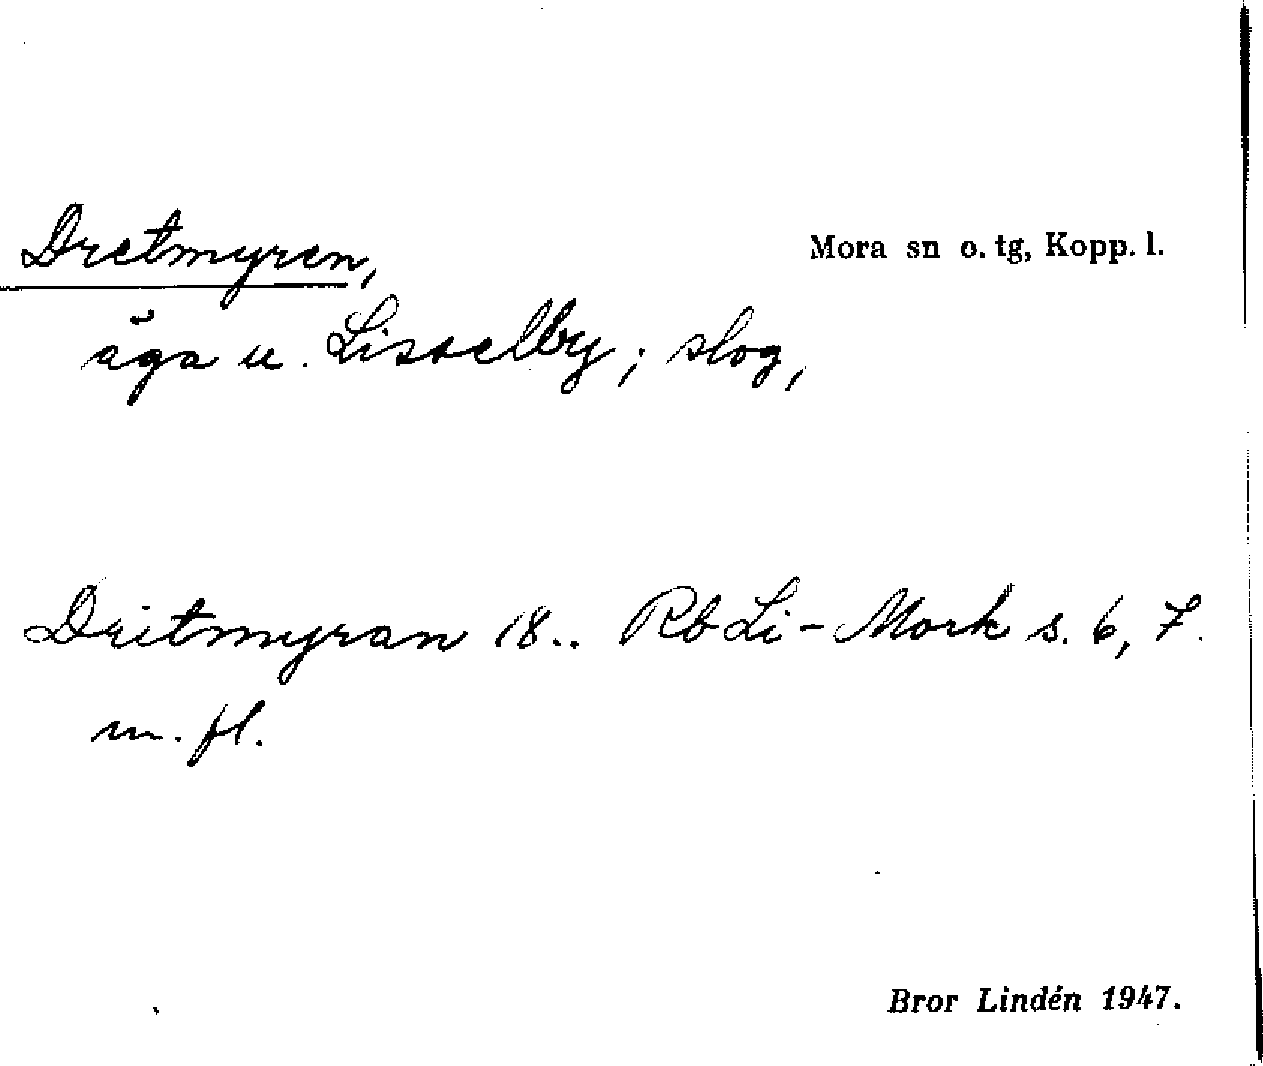 Dretmyren,
Mora sn o. tg, Kopp. l.
äga u. Lisselby; slog,
Dritmyran 18.. Rb Li-Mork s. 6, 7.
m. fl.
Bror Lindén 1947.